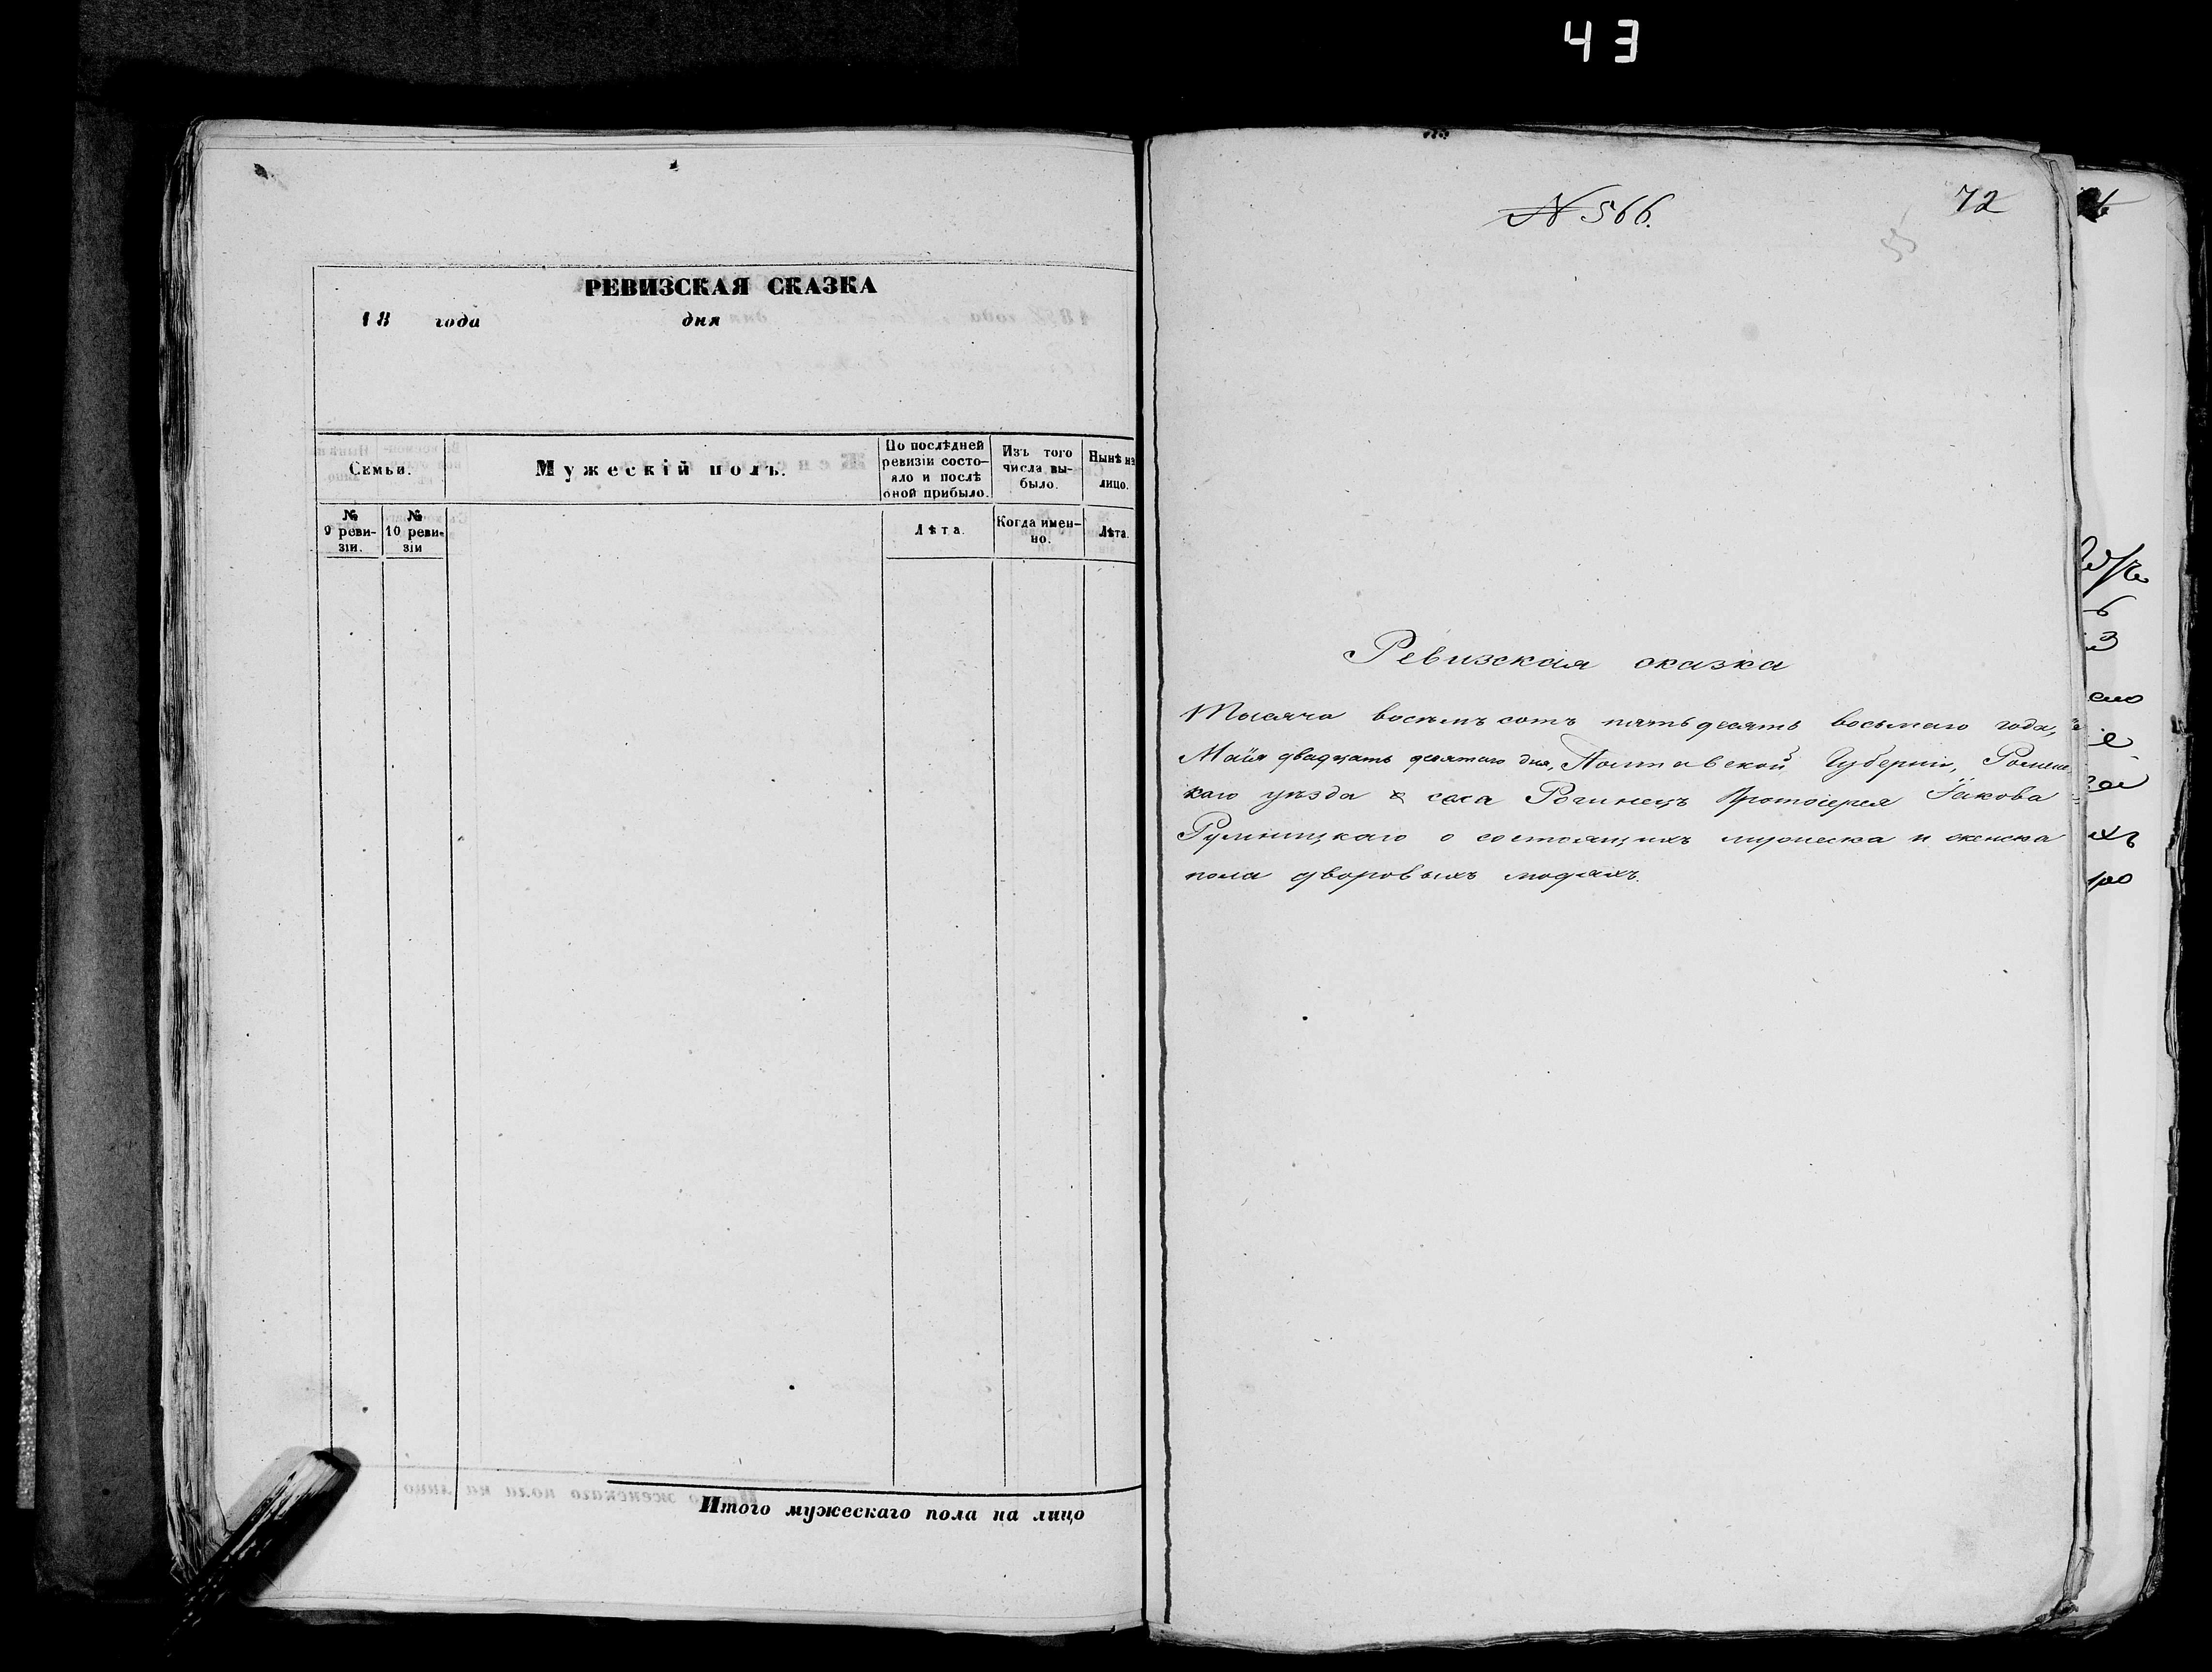 43
РЕВИЗСКАЯ СКАЗКА
18 года дня
Семьи.
Мужескій полъ.
По послѣдней ревизіи состо-
яло и послѣ оной прибыло.
Изъ того числа вы-
было.
Нынѣ на лицо.
№ 9 реви-
зіи.
№ 10 реви-
зіи
Лѣта.
Когда имен-
но.
Лѣта.
Итого мужескаго пола на лицо
N 566.
72
Ревизская сказка
Тысяча восемъ сотъ пятьдесятъ восьмаго года,
Маія двадцать девятаго дня, Полтавской Губерніи, Роменс
каго уѣзда села Рогинецъ Протоіерея Іакова
Румницкаго о состоящихъ мужеска и женска
пола дворовыхъ людяхъ.